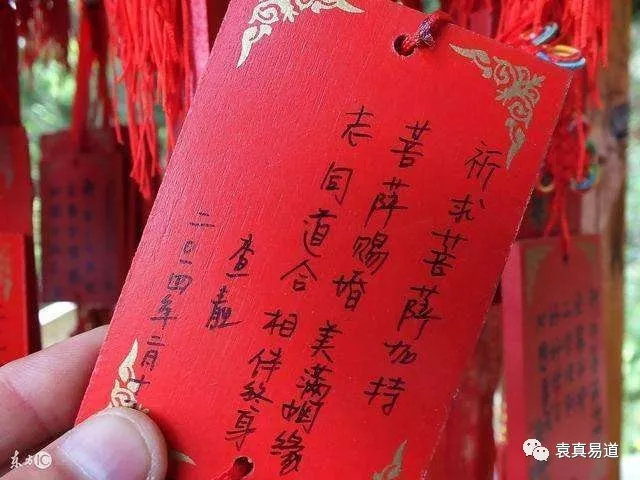 祈求菩萨加持
菩萨赐婚 美满姻缘
志同道合 相伴终身
查
二〇一四年二月十
东方IC
袁真易道